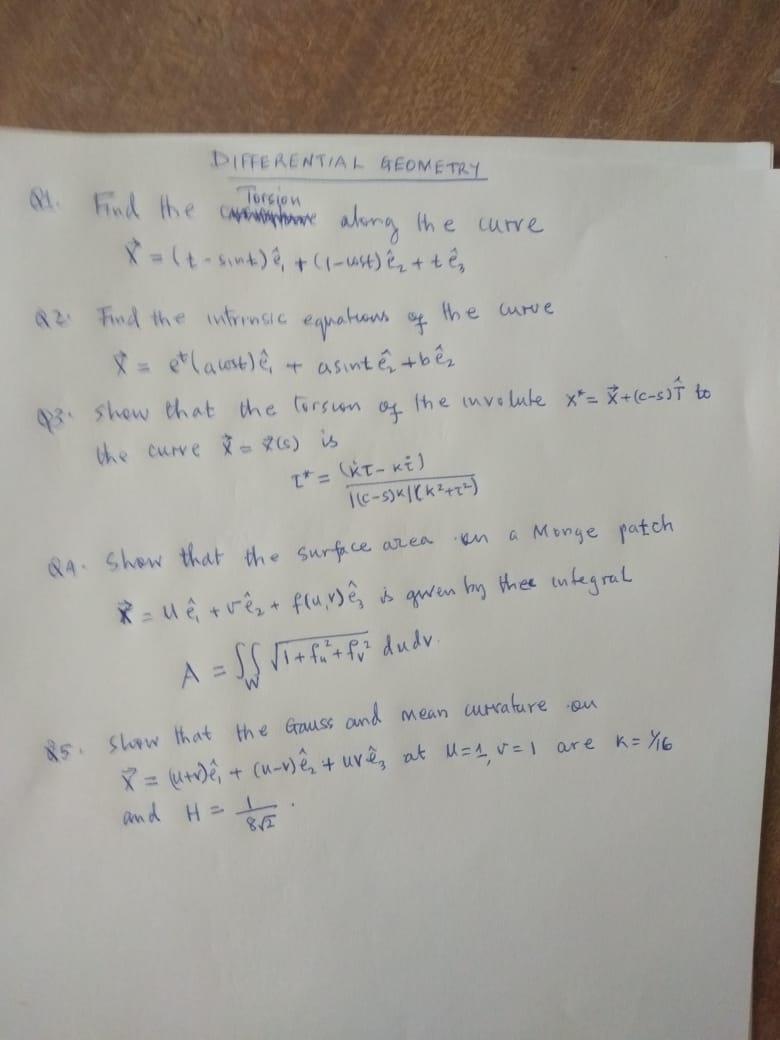 DIFFERENTIAL GEOMETRY
Q1. Find the Torsion along the curve
x⃗ = (t - sint)ê₁ + (1-cost)ê₂ + tê₃
Q2. Find the intrinsic equations of the curve
x⃗ = eᵗ(acost)ê₁ + asintê₂ + bê₂
Q3. Show that the torsion of the involute x* = x⃗ + (c-s)T̂ to
the curve x⃗ = x⃗(s) is
τ* = (k̇τ - kτ̇) / |(c-s)k|(k²+τ²)
Q4. Show that the surface area on a Monge patch
x⃗ = uê₁ + vê₂ + f(u,v)ê₃ is given by thee integral
A = ∬_W √(1+fᵤ²+fᵥ²) dudv.
Q5. Show that the Gauss and mean curvature on
x⃗ = (u+v)ê₁ + (u-v)ê₂ + uvê₃ at u=1, v=1 are k = 1/16
and H = 1/(8√2).